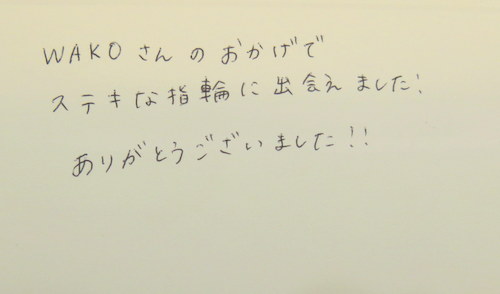 WAKOさんのおかげで
ステキな指輪に出会えました!
ありがとうございました!!